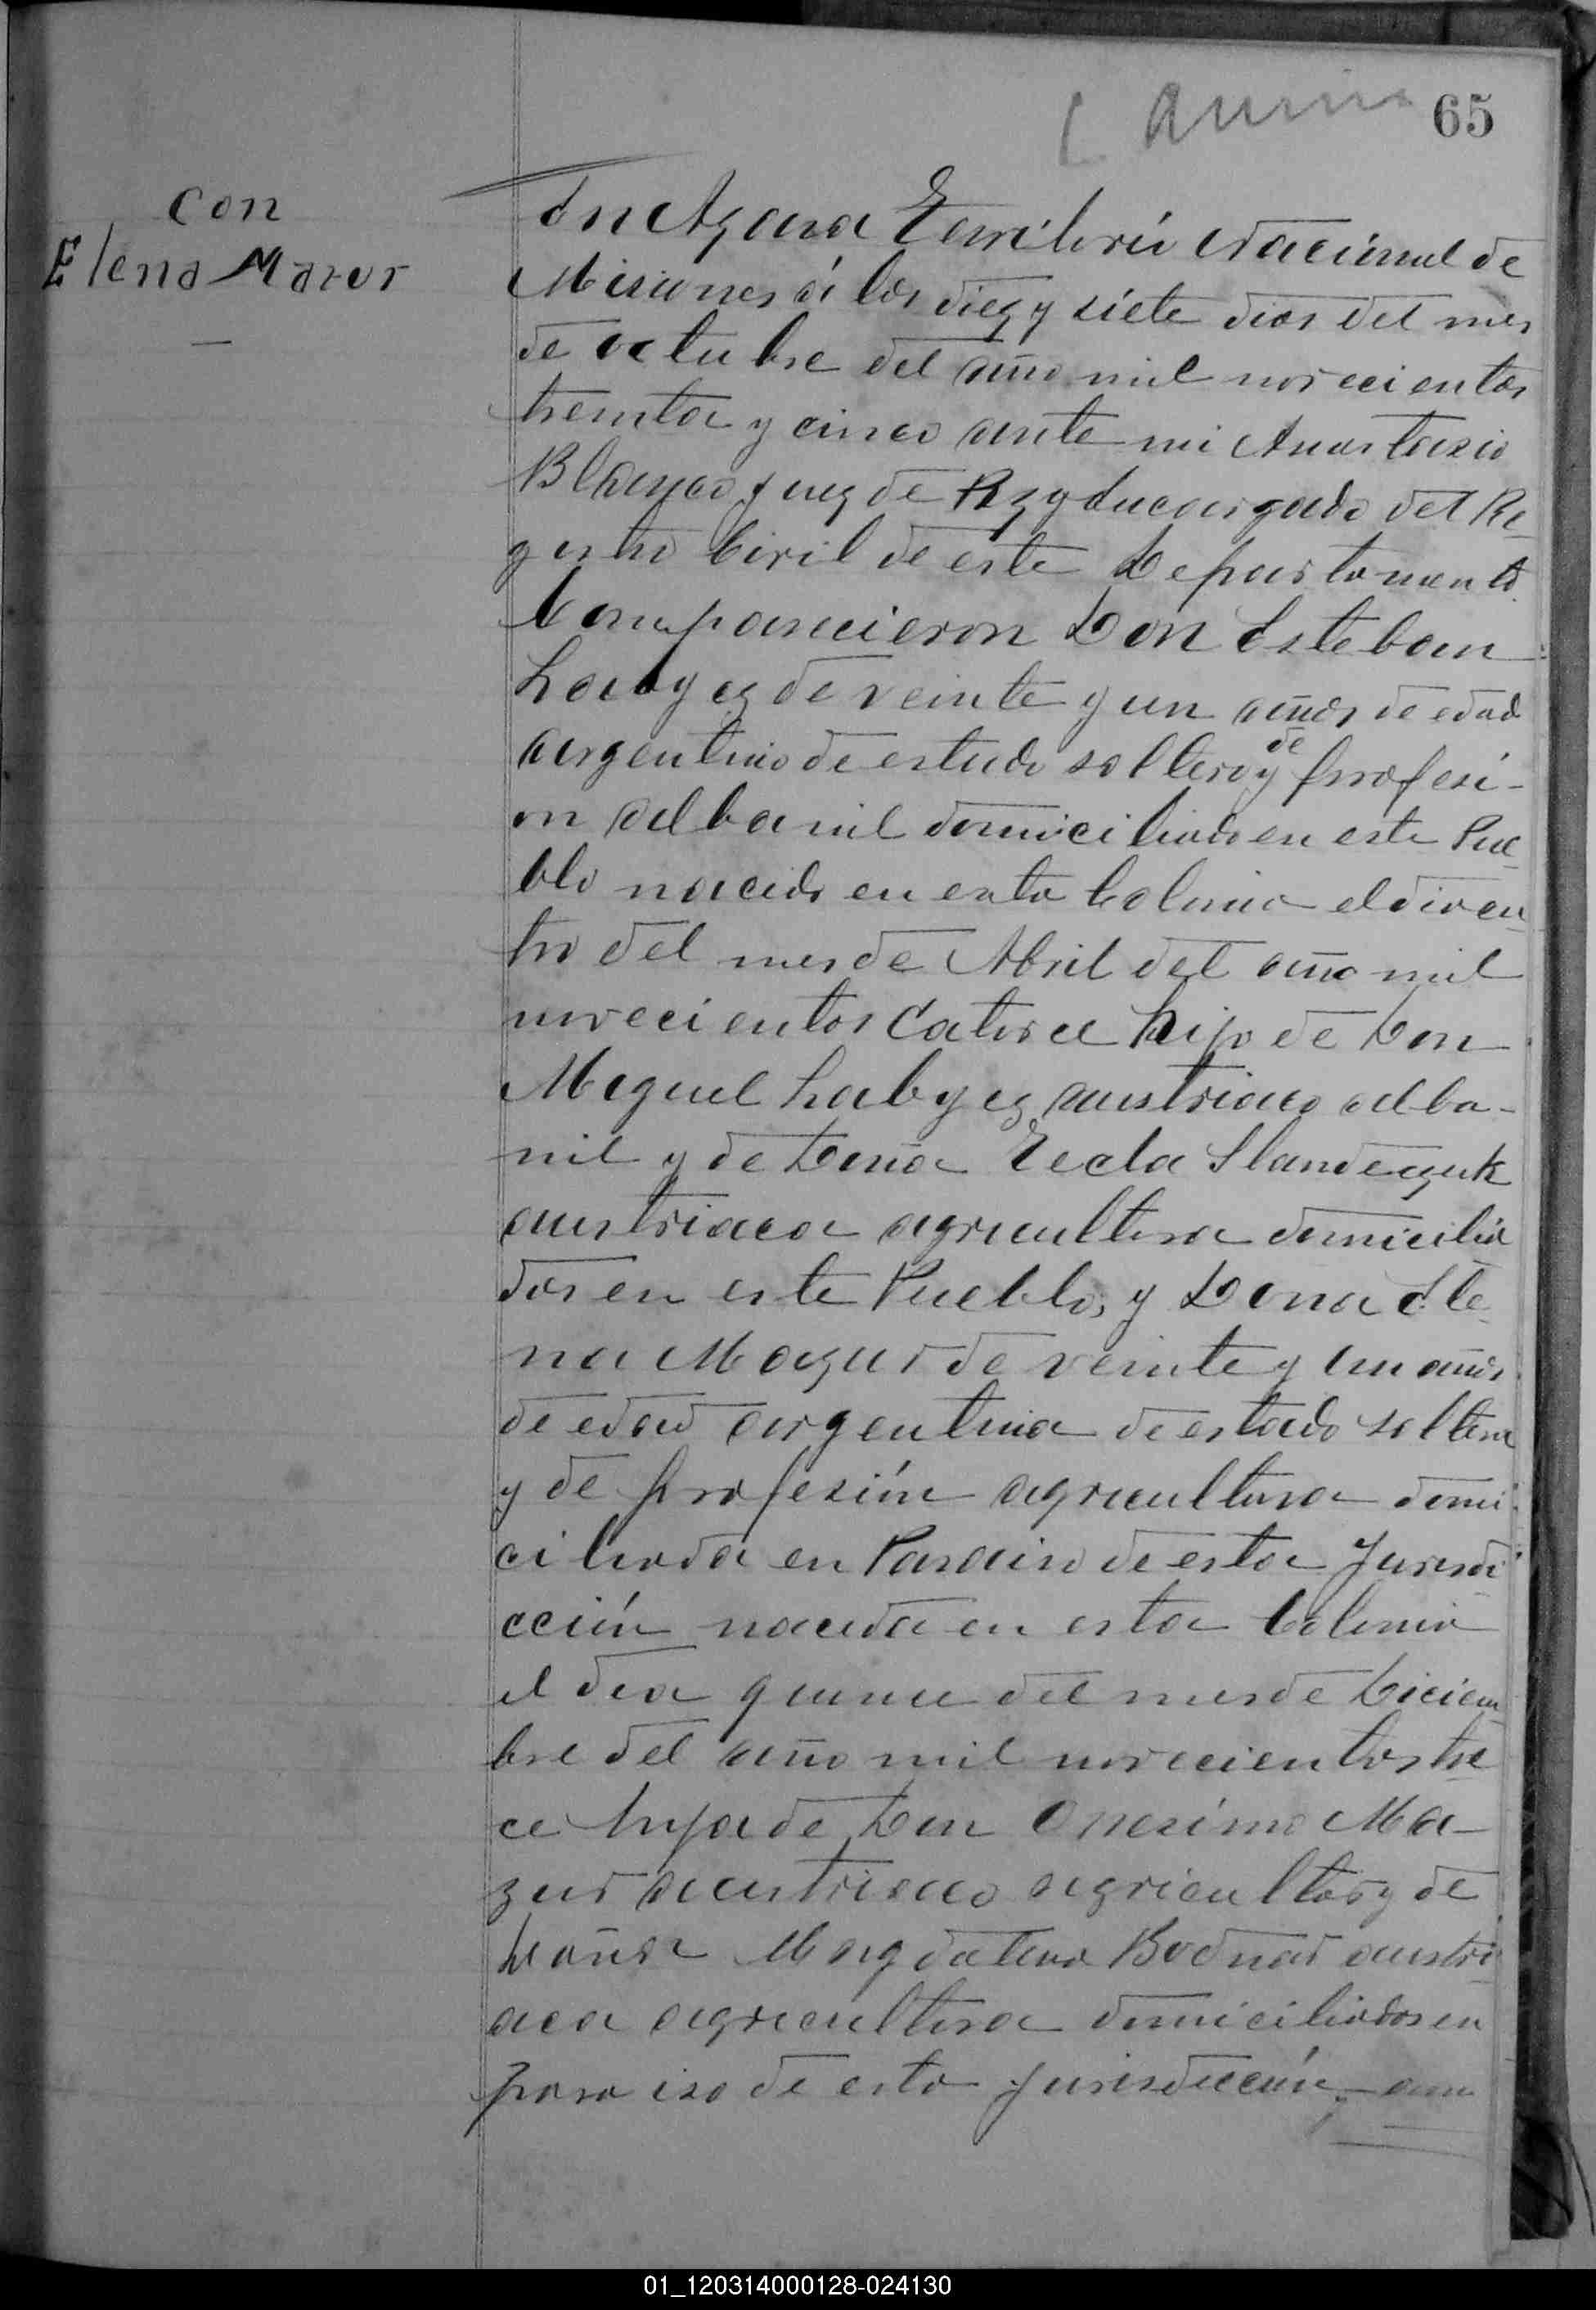 65
con
Elena Mazur
En Azara Territorio Nacional de
Misiones á los diez y siete dias del mes
de octubre del año mil novecientos
treinta y cinco ante mi Anastasio
Blanco Juez de Paz y Encargado del Re-
gistro Civil de este Departamento
Comparecieron Don Esteban
Labyez de veinte y un años de edad
argentino de estado soltero y de profesi-
on albanil domiciliado en este Pue-
blo nacido en esta Colonia el dia cua-
tro del mes de Abril del año mil
novecientos Catorce hijo de Don
Miguel Labyez austriaco alba-
nil y de Doña Tecla Slandezuk
austriaca agricultora domicilia
dos en este Pueblo; y Dona Ele-
na Mazur de veinte y un años
de edad argentina de estado soltera
y de profesión agricultora domi-
ciliada en Paraiso de esta Jurisdi-
cción nacida en esta Colonia
el dia quince del mes de Diciem-
bre del año mil novecientos tre-
ce hija de Don Onesimo Ma-
zur austriaco agricultor y de
Doña Magdalena Bodnar austri-
aca agricultora domiciliados en
paraiso de esta Jurisdicción,
01_120314000128-024130